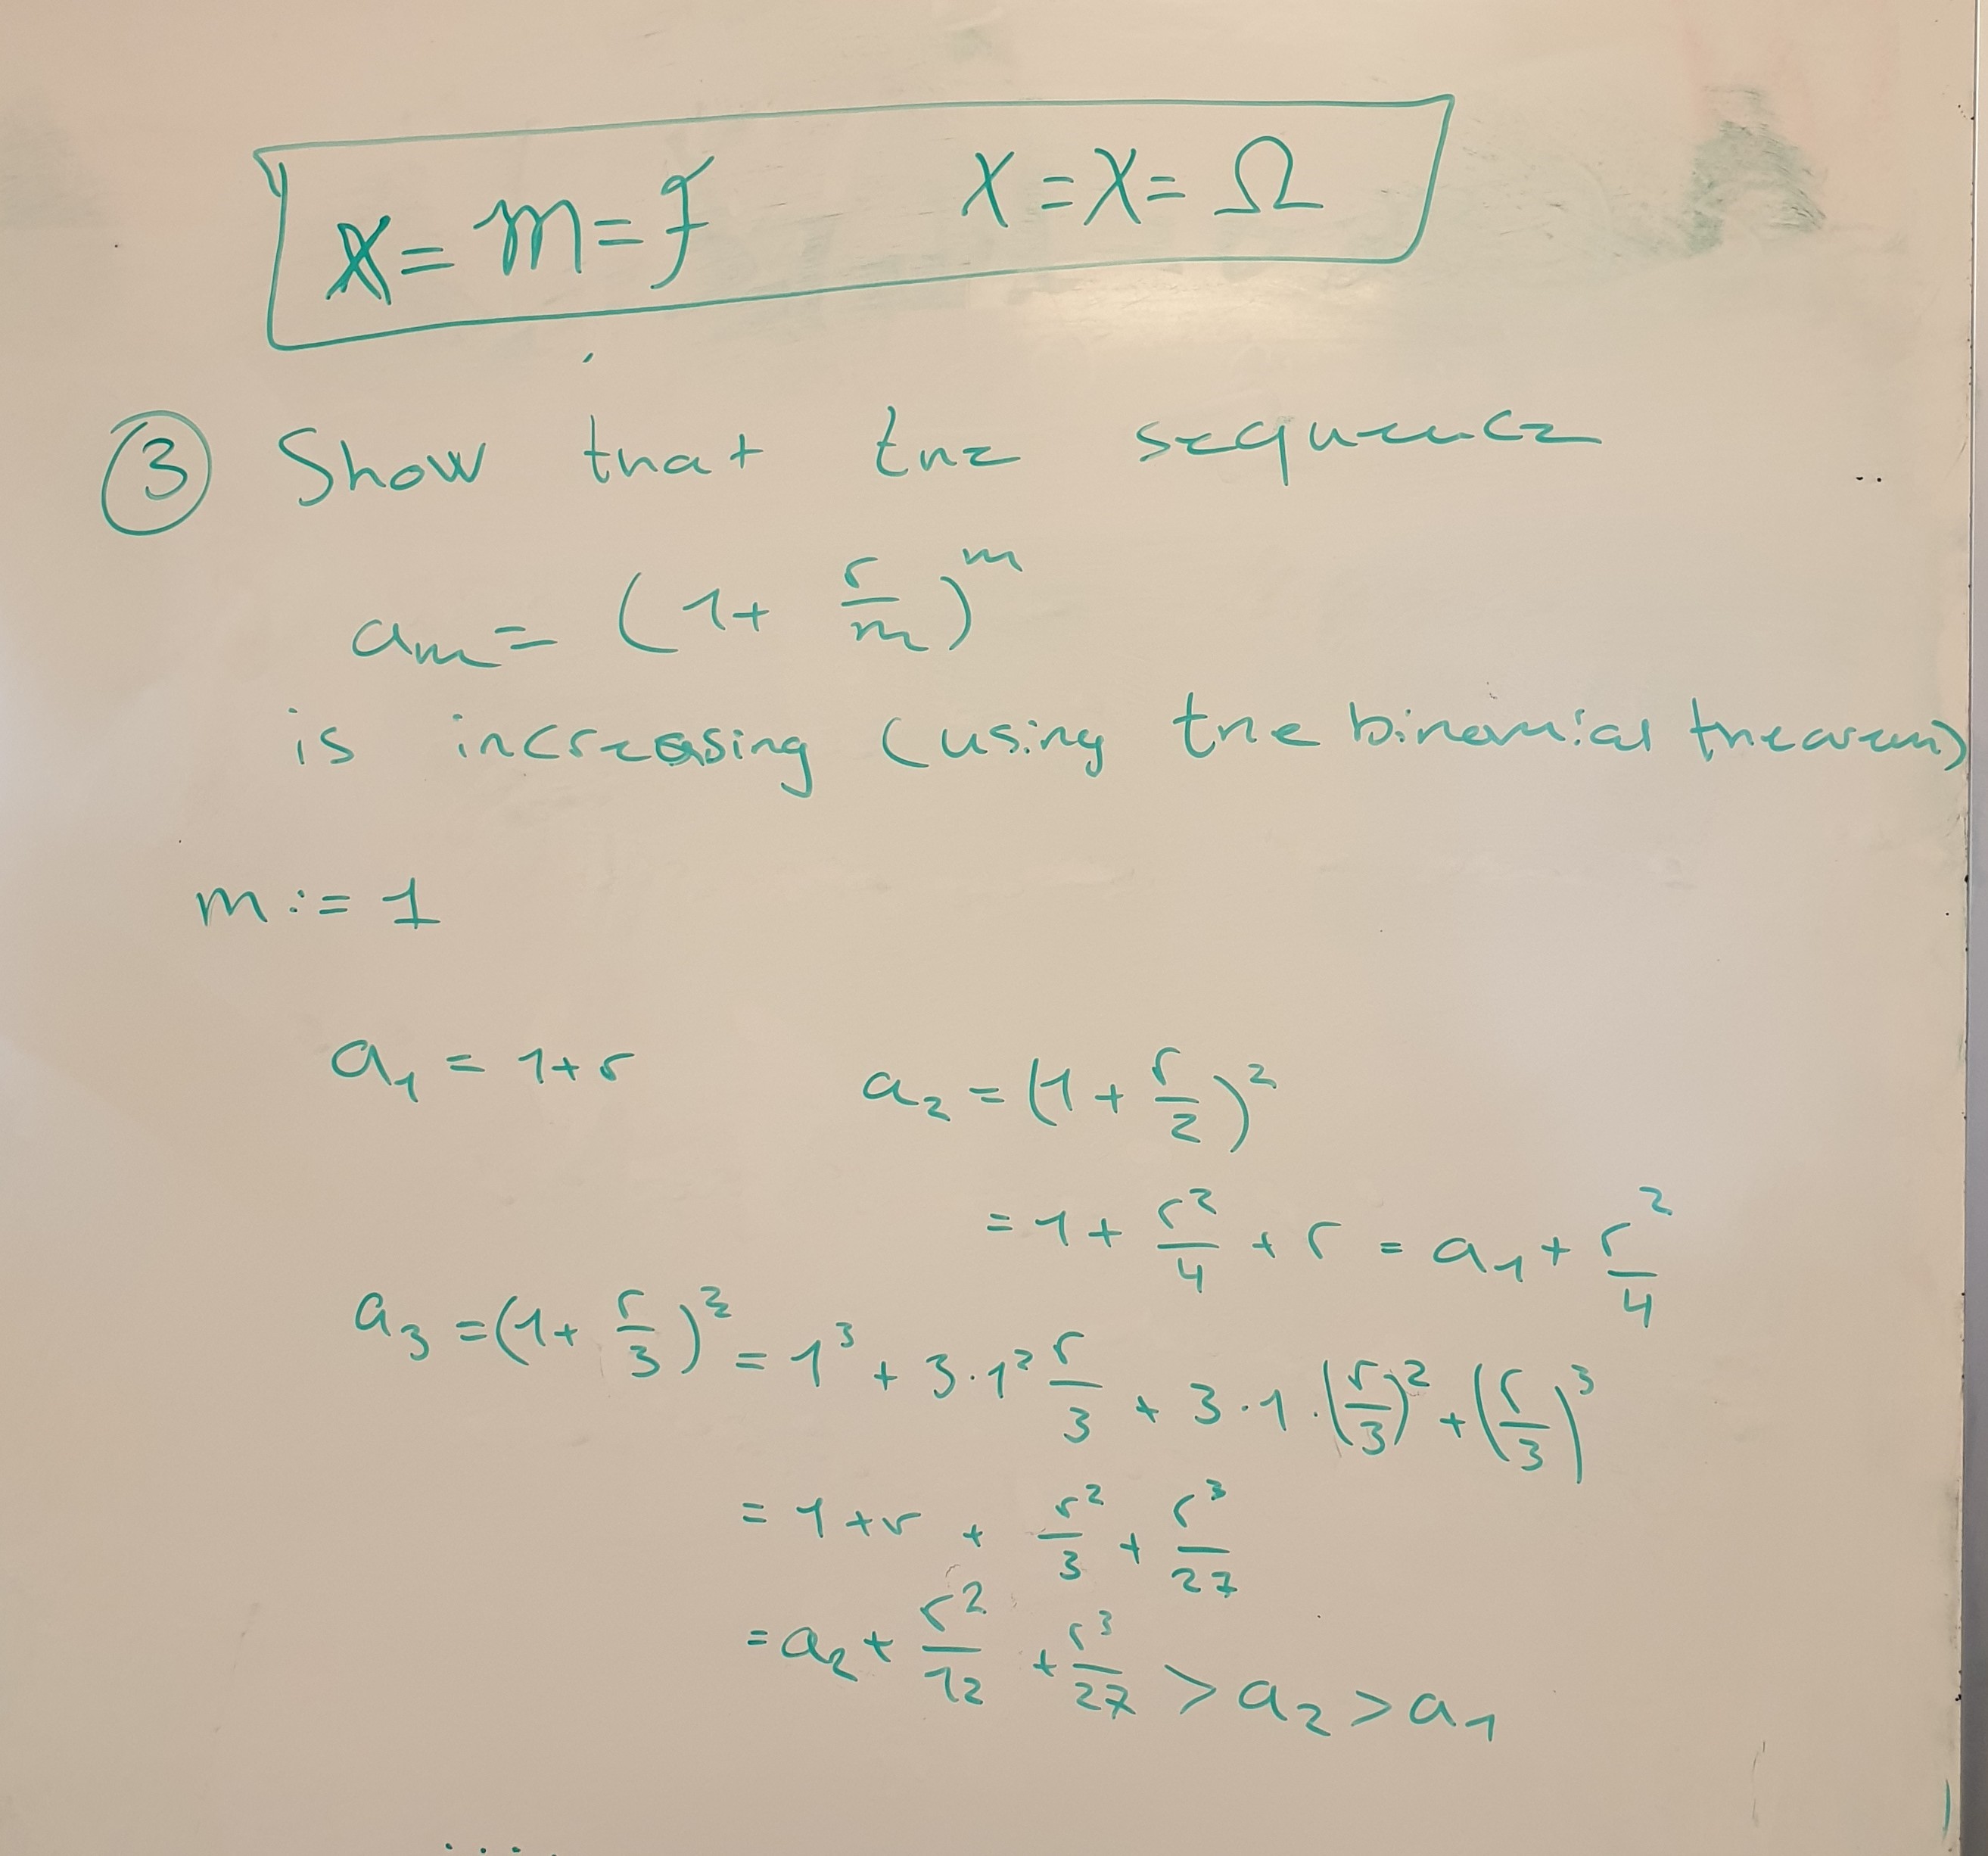 X = m = f X = X = Ω
③ Show that the sequence
aₘ = (1 + r/m)ᵐ
is increasing (using the binomial theorem)
m := 1
a₁ = 1+r a₂ = (1 + r/2)²
= 1 + r²/4 + r = a₁ + r²/4
a₃ = (1 + r/3)³ = 1³ + 3·1² r/3 + 3·1·(r/3)² + (r/3)³
= 1+r + r²/3 + r³/27
= a₂ + r²/12 + r³/27 > a₂ > a₁